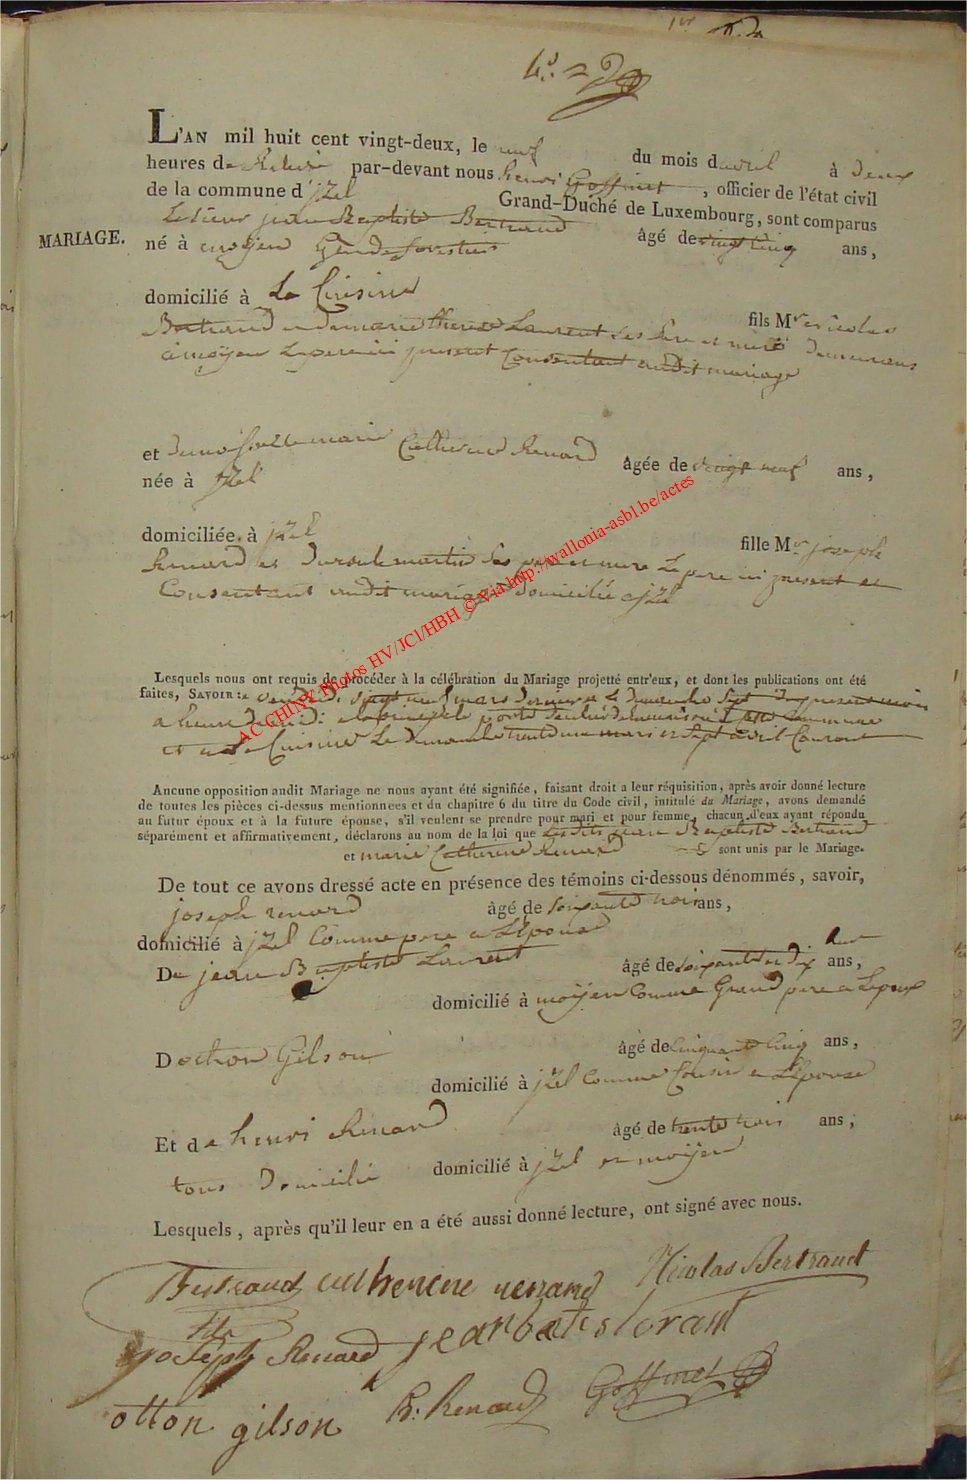 4.e = 
L'AN mil huit cent vingt-deux, le neuf du mois d'avril à deux
heures de relevée par-devant nous henri Goffinet, officier de l'état civil
de la commune d'jzel Grand-Duché de Luxembourg, sont comparus
Le Sieur jean Baptiste Bertrand âgé de vingt cinq ans,
MARIAGE.
né à moyen Garde forestier
domicilié à La Cuisine
fils Mr nicolas
Bertrand et de marie therese Laurent Ses Pere et mere demeurans
à moyen Le pere ici present Consentant audit mariage
et demoiselle marie Catherine Renard âgée de vingt neuf ans,
née à jzel
domiciliée à jzel
fille Mr joseph
Renard et Dursule martin Ses pere et mere Le pere ici present et
Consentant audit mariage domicilié a jzel
Lesquels nous ont requis de procéder à la célébration du Mariage projetté entr'eux, et dont les publications ont été
faites, SAVOIR: mars dernier et Le dimanche Sept du present mois
a heure de midi a la principale porte de notre commune
et a La Cuisine Le dimanche trente un mars et Sept avril Courant
Aucune opposition audit Mariage ne nous ayant été signifiée, faisant droit a leur réquisition, après avoir donné lecture
de toutes les pièces ci-dessus mentionnees et du chapitre 6 du titre du Code civil, intitulé du Mariage, avons demandé
au futur époux et à la future épouse, s'il veulent se prendre pour mari et pour femme, chacun d'eux ayant répondu
séparément et affirmativement, déclarons au nom de la loi que Les dits jean Baptiste Bertrand
et marie Catherine Renard sont unis par le Mariage.
De tout ce avons dressé acte en présence des témoins ci-dessous dénommés, savoir,
joseph renard âgé de Soixante trois ans,
domicilié à jzel Comme pere a L'épouse
De jean Baptiste Laurent âgé de Soixante et dix ans,
domicilié à moyen Comme Grand pere a Lepoux
D'otton Gilson âgé de Cinquante Cinq ans,
domicilié à jzel Comme Cousin a L'épouse
Et de henri Renard âgé de trente trois ans,
tous Domicilié domicilié à jzel et moyen
Lesquels, après qu'il leur en a été aussi donné lecture, ont signé avec nous.
Bertrand catherine renard Nicolas Bertrand
fils
joseph Renard jean batis lorant
otton gilson h. Renard Goffinet
AC CHINY-Photos HV/JCl/HBH © Via http://wallonia-asbl.be/actes